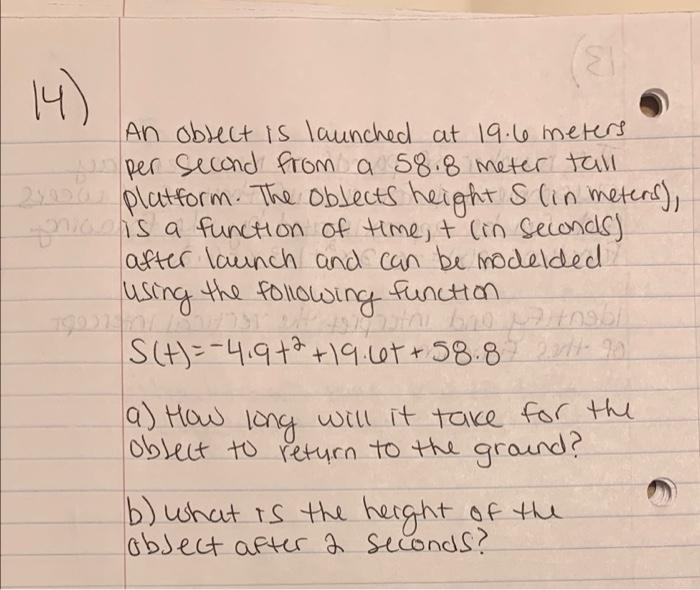 14)
An object is launched at 19.6 meters
per second from a 58.8 meter tall
platform. The objects height S (in meters),
is a function of time, t (in seconds)
after launch and can be modelded
using the following function
S(t)=-4.9t²+19.6t+58.8
a) How long will it take for the
object to return to the ground?
b) what is the height of the
object after 2 seconds?